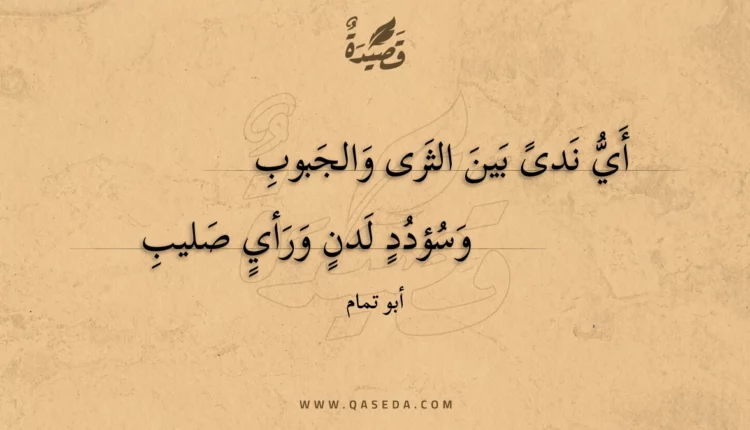 قَصِيْدَةٌ
أَيُّ نَدىً بَينَ الثَرى وَالجَبوبِ
وَسُؤدُدٍ لَدنٍ وَرَأيٍ صَليبِ
أبو تمام
WWW.QASEDA.COM